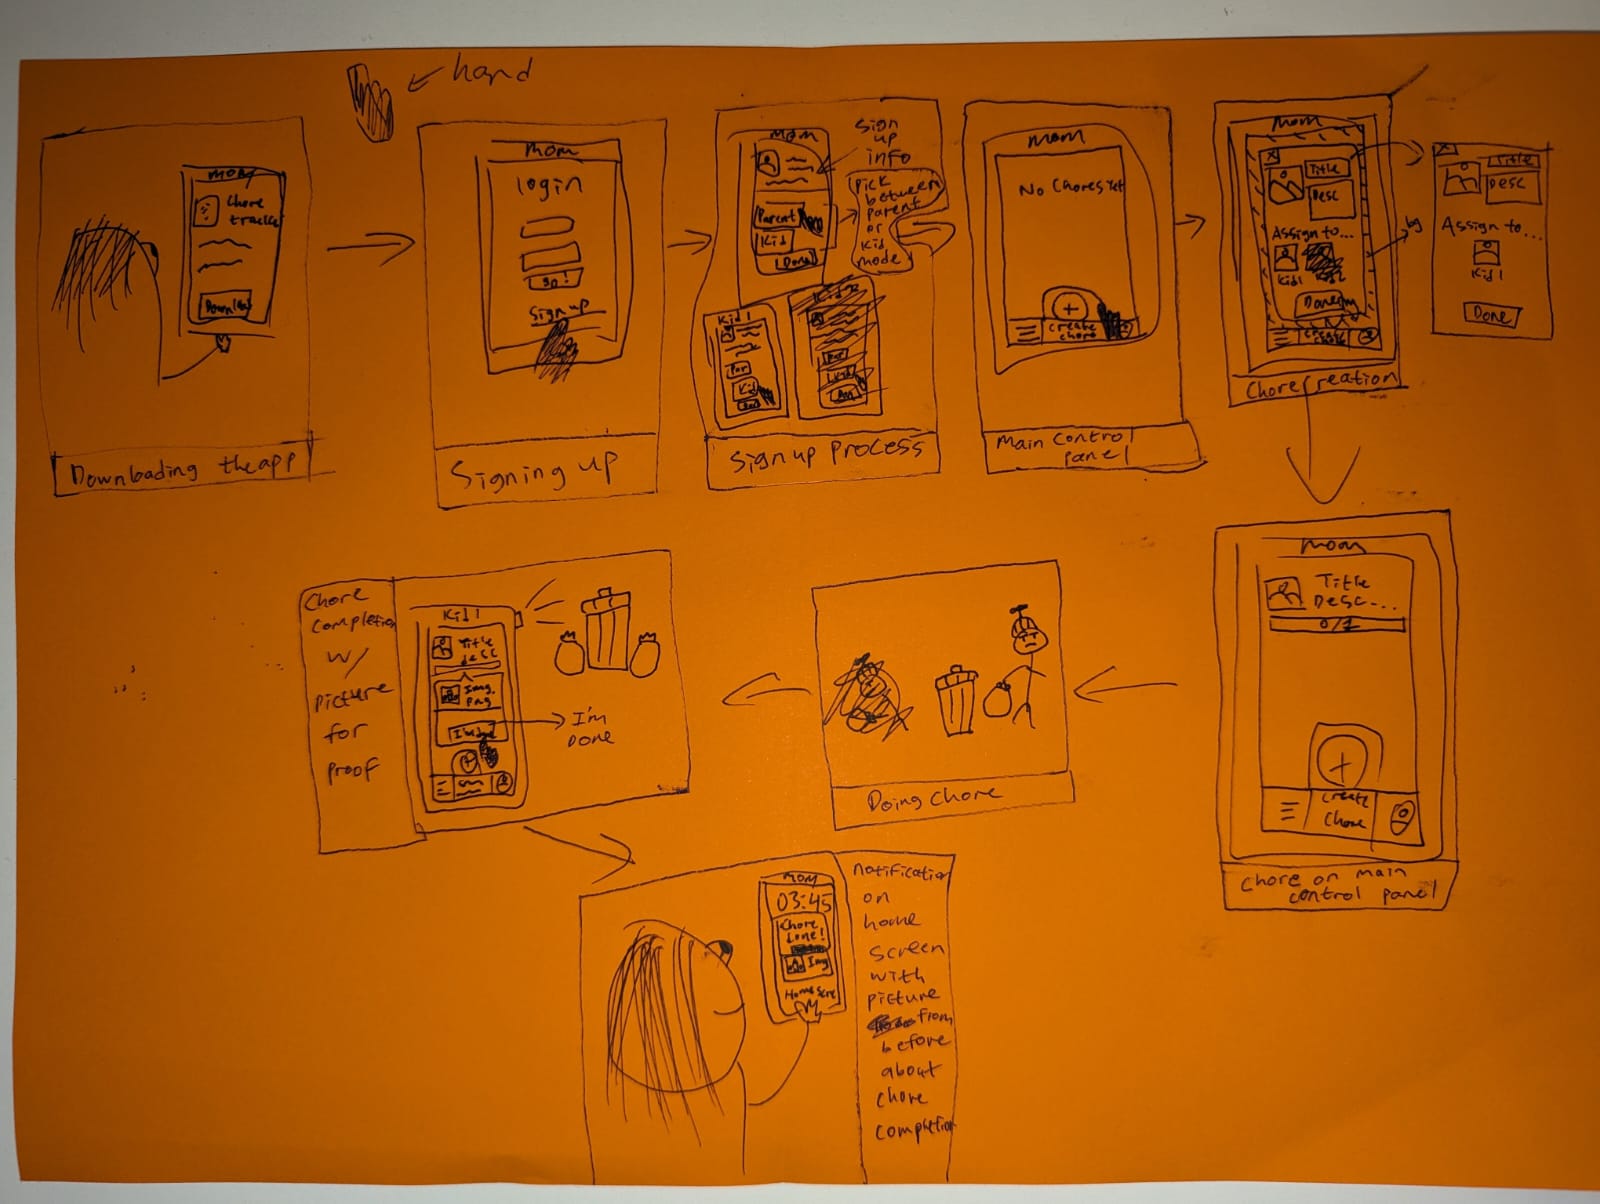 hand
mom
Chore
tracke
Download
Downloading the app
mom
login
go!
Sign up
Signing up
mom
Parent
Kid
Done
sign
up
info
Pick
between
parent
or
kid
mode
Kid 1
Par
Kid
Sign up process
mom
No Chores Yet
+
create
chore
Main control
panel
mom
X
Title
Desc
Assign to...
Kid 1
Done
Chore Creation
bg
X
Title
Desc
Assign to...
Kid 1
Done
mom
Title
Desc...
0/1
+
create
chore
Chore on main
control panel
Doing chore
Chore
completion
w/
picture
for
proof
Kid 1
Title
desc
Img.
png
+
I'm
Done
mom
03:45
Chore
Done!
Img
Home Scre
notification
on
home
screen
with
picture
from
before
about
chore
completion